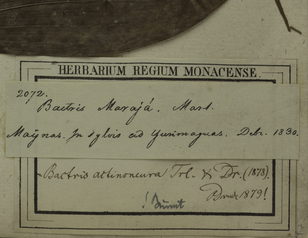 HERBARIUM REGIUM MONACENSE.
2072.
Bactris Marajá. Mart.
Maÿnas. In sylvis ad Yurimaguas. Dcbr. 1830.
Bactris actinoneura Trl. & Dr. (1878).
Drude 1879!